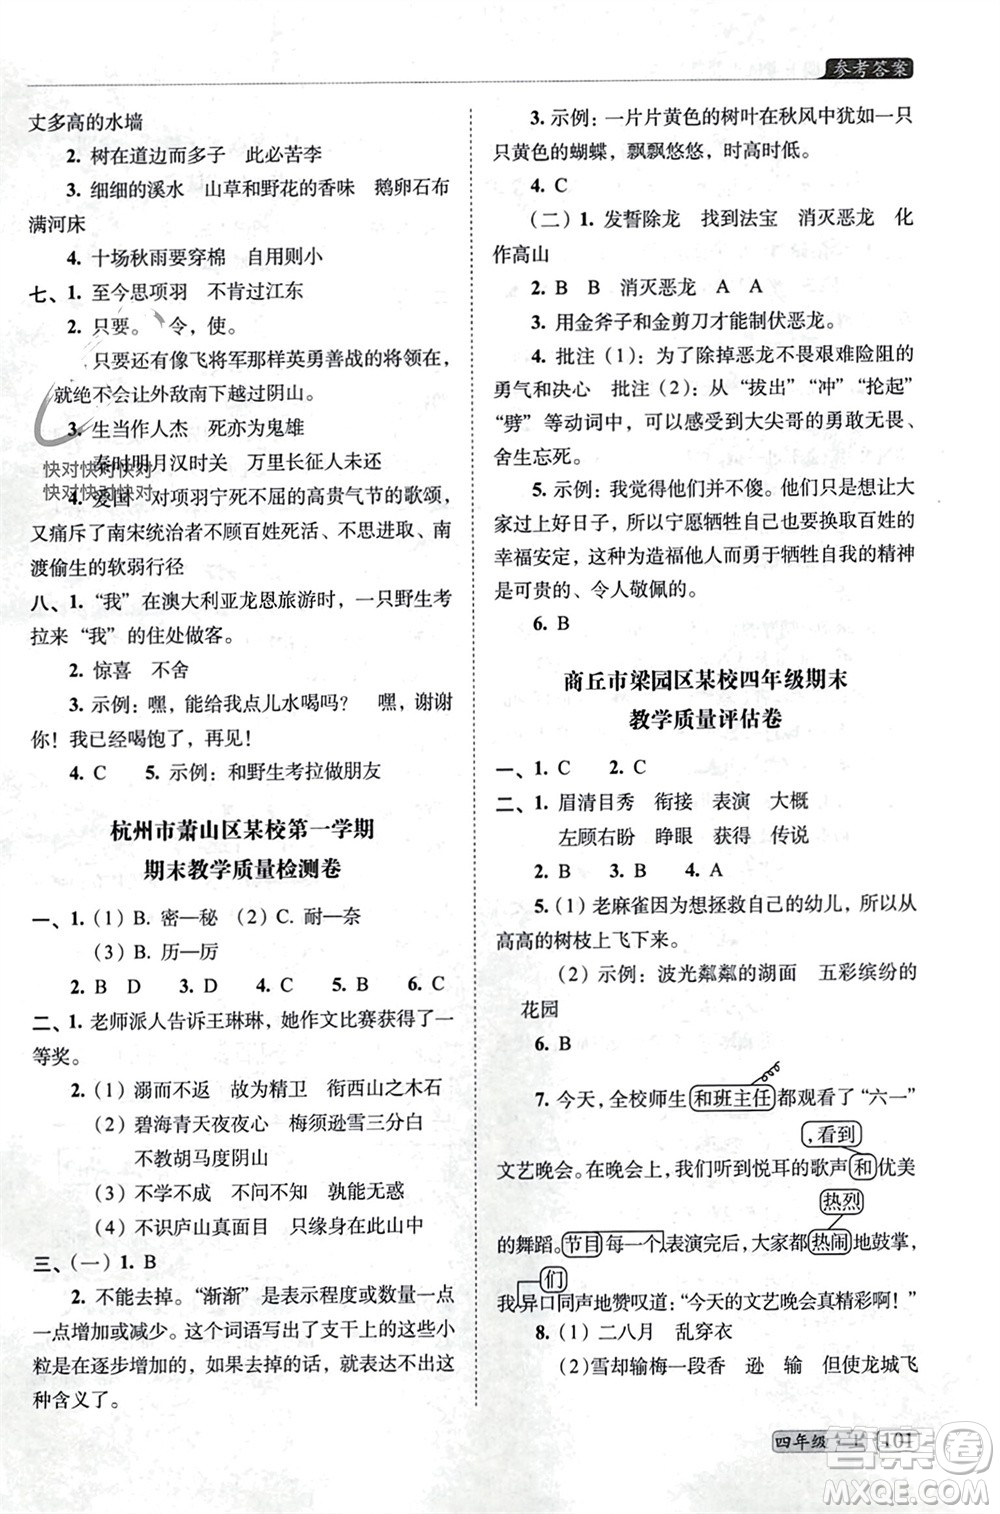 参考答案
丈多高的水墙
2. 树在道边而多子　此必苦李
3. 细细的溪水　山草和野花的香味　鹅卵石布
满河床
4. 十场秋雨要穿棉　自用则小
七、1. 至今思项羽　不肯过江东
2. 只要。　令，使。
只要还有像飞将军那样英勇善战的将领存在，
就绝不会让外敌南下越过阴山。
3. 生当作人杰　死亦为鬼雄
秦时明月汉时关　万里长征人未还
快对快对快对
快对快对快对
4. 爱国　对项羽宁死不屈的高贵气节的歌颂，
又痛斥了南宋统治者不顾百姓死活、不思进取、南
渡偷生的软弱行径
八、1. “我”在澳大利亚龙恩旅游时，一只野生考
拉来“我”的住处做客。
2. 惊喜　不舍
3. 示例：嘿，能给我点儿水喝吗？　嘿，谢谢
你！我已经喝饱了，再见！
4. C　5. 示例：和野生考拉做朋友
杭州市萧山区某校第一学期
期末教学质量检测卷
一、1.（1）B. 密—秘　（2）C. 耐—奈
（3）B. 历—厉
2. B　D　3. D　4. B　5. B　6. C
二、1. 老师派人告诉王琳琳，她作文比赛获得了一
等奖。
2.（1）溺而不返　故为精卫　衔西山之木石
（2）碧海青天夜夜心　梅须逊雪三分白
不教胡马度阴山
（3）不学不成　不问不知　孰能无惑
（4）不识庐山真面目　只缘身在此山中
三、（一）1. B
2. 不能去掉。“渐渐”是表示程度或数量一点
一点增加或减少。这个词语写出了支干上的这些小
粒是在逐步增加的，如果去掉的话，就表达不出这
种含义了。
3. 示例：一片片黄色的树叶在秋风中犹如一只
只黄色的蝴蝶，飘飘悠悠，时高时低。
4. C
（二）1. 发誓除龙　找到法宝　消灭恶龙　化
作高山
2. B　B　消灭恶龙　A　A
3. 用金斧子和金剪刀才能制伏恶龙。
4. 批注（1）：为了除掉恶龙不畏艰难险阻的
勇气和决心　批注（2）：从“拔出”“冲”“抡起”
“劈”等动词中，可以感受到大尖哥的勇猛果敢、
舍生忘死。
5. 示例：我觉得他们并不傻。他们想让大
家过上好日子，所以宁愿牺牲自己也要换取百姓的
幸福安定，这种为造福他人而勇于牺牲自我的精神
是可贵的、令人敬佩的。
6. B
商丘市梁园区某校四年级期末
教学质量评估卷
一、1. C　2. C
二、1. 眉清目秀　衔接　表演　大概
左顾右盼　睁眼　获得　传说
2. B　3. B　4. A
5.（1）老麻雀因为想拯救自己的幼儿，所以从
高高的树枝上飞下来。
（2）示例：波光粼粼的湖面　五彩缤纷的
花园
6. B
7. 今天，全校师生和班主任都观看了“六一”
，看到
文艺晚会。在晚会上，我们听到悦耳的歌声和优美
热烈
的舞蹈。节目每一个表演完后，大家都热闹地鼓掌，
们
我异口同声地赞叹道：“今天的文艺晚会真精彩啊！”
8.（1）二八月　乱穿衣
（2）雪却输梅一段香　逊　输　但使龙城飞
四年级·上　101
答案卷
MXQE.COM